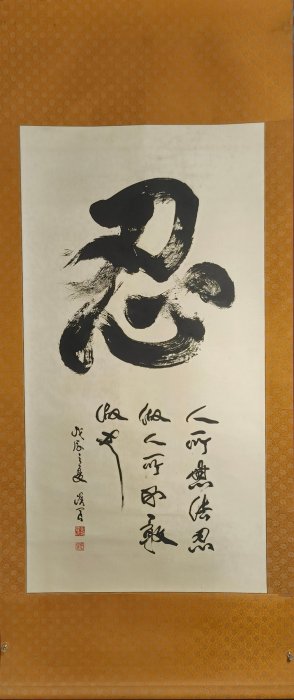 忍
人所無法忍
做人所不敢
做也
戊辰之夏